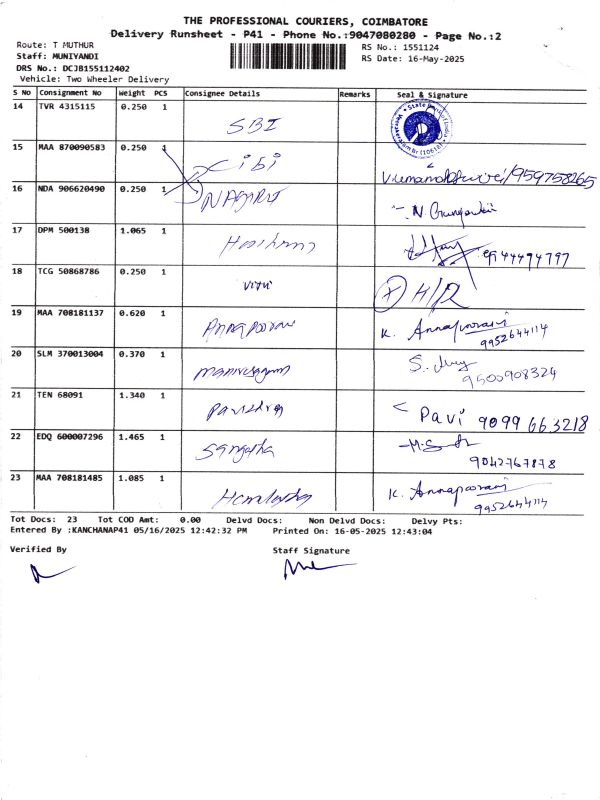 THE PROFESSIONAL COURIERS, COIMBATORE
Delivery Runsheet - P41 - Phone No.:9047080280 - Page No.:2
Route: T MUTHUR
Staff: MUNIYANDI
DRS No.: DCJB155112402
Vehicle: Two Wheeler Delivery
RS No.: 1551124
RS Date: 16-May-2025
S No Consignment No Weight PCS Consignee Details Remarks Seal & Signature
14 TVR 4315115 0.250 1 SBI
15 MAA 870090583 0.250 1 CiBi
16 NDA 906620490 0.250 1
17 DPM 500138 1.065 1
18 TCG 50868786 0.250 1 H/R
19 MAA 708181137 0.620 1 K. Annapoorani
9952644114
20 SLM 370013004 0.370 1
9500908324
21 TEN 68091 1.340 1 Pavi 9099 663218
22 EDQ 600007296 1.465 1 Sangatha
9042767878
23 MAA 708181485 1.085 1 K. Annapoorani
9952644114
Tot Docs: 23 Tot COD Amt: 0.00 Delvd Docs: Non Delvd Docs: Delvy Pts:
Entered By :KANCHANAP41 05/16/2025 12:42:32 PM Printed On: 16-05-2025 12:43:04
Verified By Staff Signature